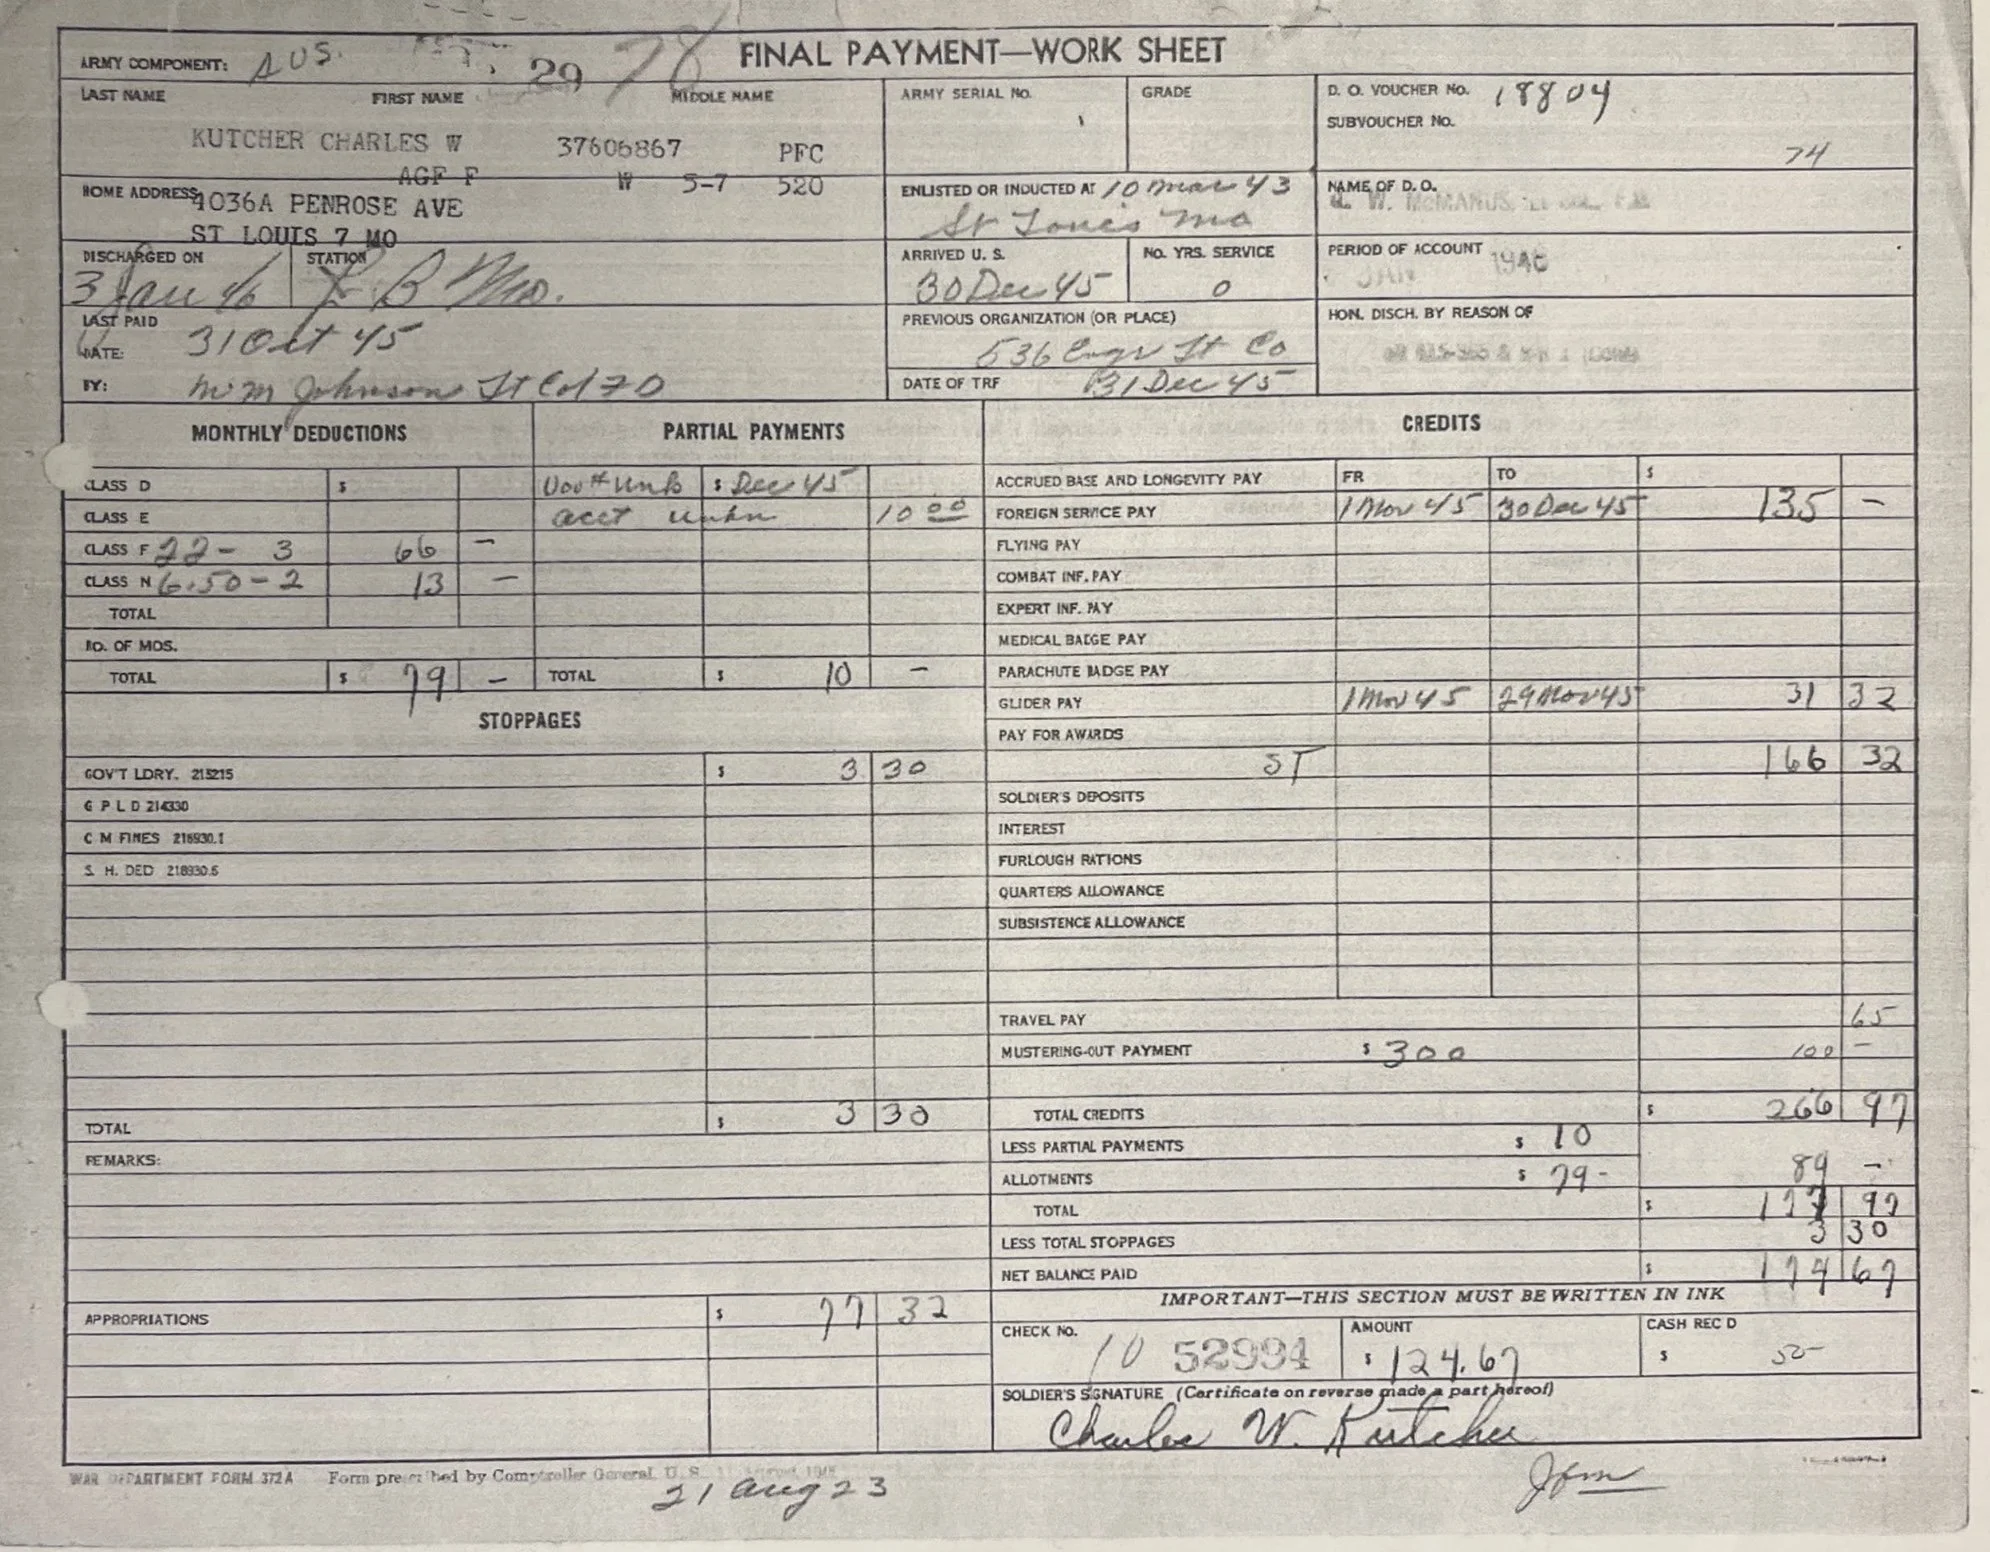 FINAL PAYMENT—WORK SHEET
ARMY COMPONENT: AUS. 29 78
LAST NAME FIRST NAME MIDDLE NAME
KUTCHER CHARLES W 37606867 PFC
AGF F W 5-7 520
HOME ADDRESS 4036A PENROSE AVE
ST LOUIS 7 MO
ARMY SERIAL No. GRADE
D. O. VOUCHER No. 18804
SUBVOUCHER No.
74
ENLISTED OR INDUCTED AT 10 Mar 43
St Louis Mo
NAME OF D. O.
W. McMANUS,
DISCHARGED ON STATION
3 Jan 46 J B Mo.
ARRIVED U. S. No. YRS. SERVICE
30 Dec 45 0
PERIOD OF ACCOUNT JAN 1946
LAST PAID
DATE: 31 Oct 45
BY: M M Johnson Lt Col FD
PREVIOUS ORGANIZATION (OR PLACE)
536 Engr Lt Co
DATE OF TRF 31 Dec 45
HON. DISCH. BY REASON OF
MONTHLY DEDUCTIONS PARTIAL PAYMENTS
CLASS D $ Vou # Unk $ Dec 45
CLASS E acct unkn 10 00
CLASS F 22 - 3 66 –
CLASS N 6.50 - 2 13 –
TOTAL
NO. OF MOS.
TOTAL $ 79 – TOTAL $ 10 –
STOPPAGES
GOV'T LDRY. 215215 $ 3 30
G P L D 214330
C M FINES 216930.1
S. H. DED 218930.5
TOTAL $ 3 30
REMARKS:
APPROPRIATIONS $ 77 32
CREDITS
ACCRUED BASE AND LONGEVITY PAY FR TO $
FOREIGN SERVICE PAY 1 Nov 45 30 Dec 45 135 –
FLYING PAY
COMBAT INF. PAY
EXPERT INF. PAY
MEDICAL BADGE PAY
PARACHUTE BADGE PAY
GLIDER PAY 1 Nov 45 29 Nov 45 31 32
PAY FOR AWARDS
ST 166 32
SOLDIER'S DEPOSITS
INTEREST
FURLOUGH RATIONS
QUARTERS ALLOWANCE
SUBSISTENCE ALLOWANCE
TRAVEL PAY 65
MUSTERING-OUT PAYMENT $ 300 100 –
TOTAL CREDITS $ 266 97
LESS PARTIAL PAYMENTS $ 10
ALLOTMENTS $ 79- 89 –
TOTAL $ 177 97
LESS TOTAL STOPPAGES 3 30
NET BALANCE PAID $ 174 67
IMPORTANT—THIS SECTION MUST BE WRITTEN IN INK
CHECK NO. AMOUNT CASH REC'D
10 52994 $ 124.67 $ 50-
SOLDIER'S SIGNATURE (Certificate on reverse made a part hereof)
Charles W. Kutcher
WAR DEPARTMENT FORM 372A Form prescribed by Comptroller General, U. S.
21 Aug 23